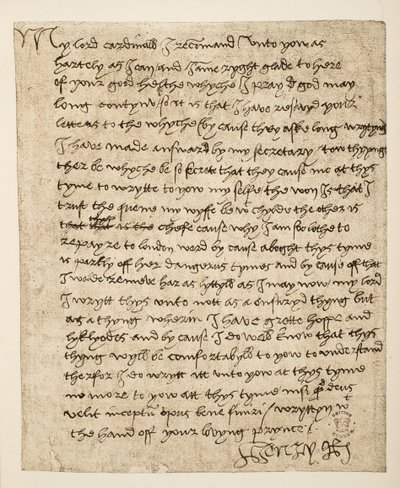 My lord cardinall I recomand unto yow as
hartely as I can and I am ryght glade to here
of your good helthe whyche I pray god may
long contynu so it is that I have resavyd your
letters to the whyche by cause they aske long wrytyng
I have made answar by my secretary tow thyngs
ther be whyche be so secrete that they cause me at thys
tyme to wrytte to yow my selfe the won is that I
trust the quene my wyffe be wt chylde the other is
chefe cause why I am so lothe to
repayre to london ward by cause aboght thys tyme
is partly off her dangerus tymes and by cause off that
I wolde remove har as lyttyll as I may now my lord
I wrytt thys unto nott as a ensuryd thyng but
as a thyng wherin I have grette hoppe and
lyklyodes and by cause I do well know that thys
thyng wyll be comfortabyll to yow to understand
therfor I do wrytt itt unto yow at thys tyme
no more to yow att thys tyme nisi quod deus
velit inceptum opus bene finiri wryttyn wt
the hand off your lovyng prynce
Henry R